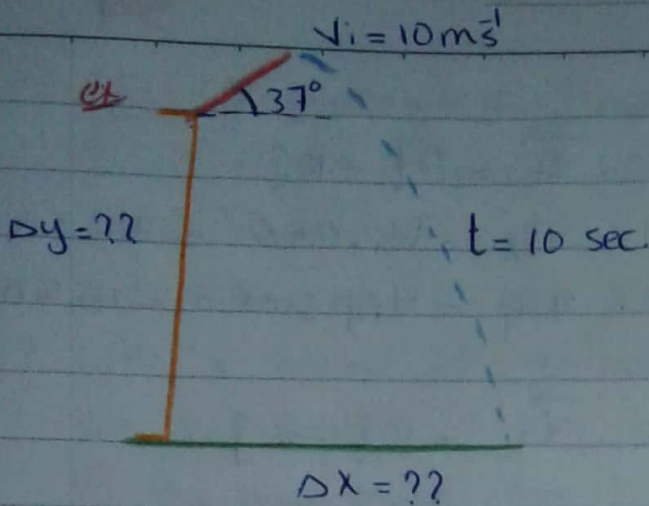 Vi = 10ms⁻¹
ex
37°
Δy = ??
t = 10 sec.
Δx = ??